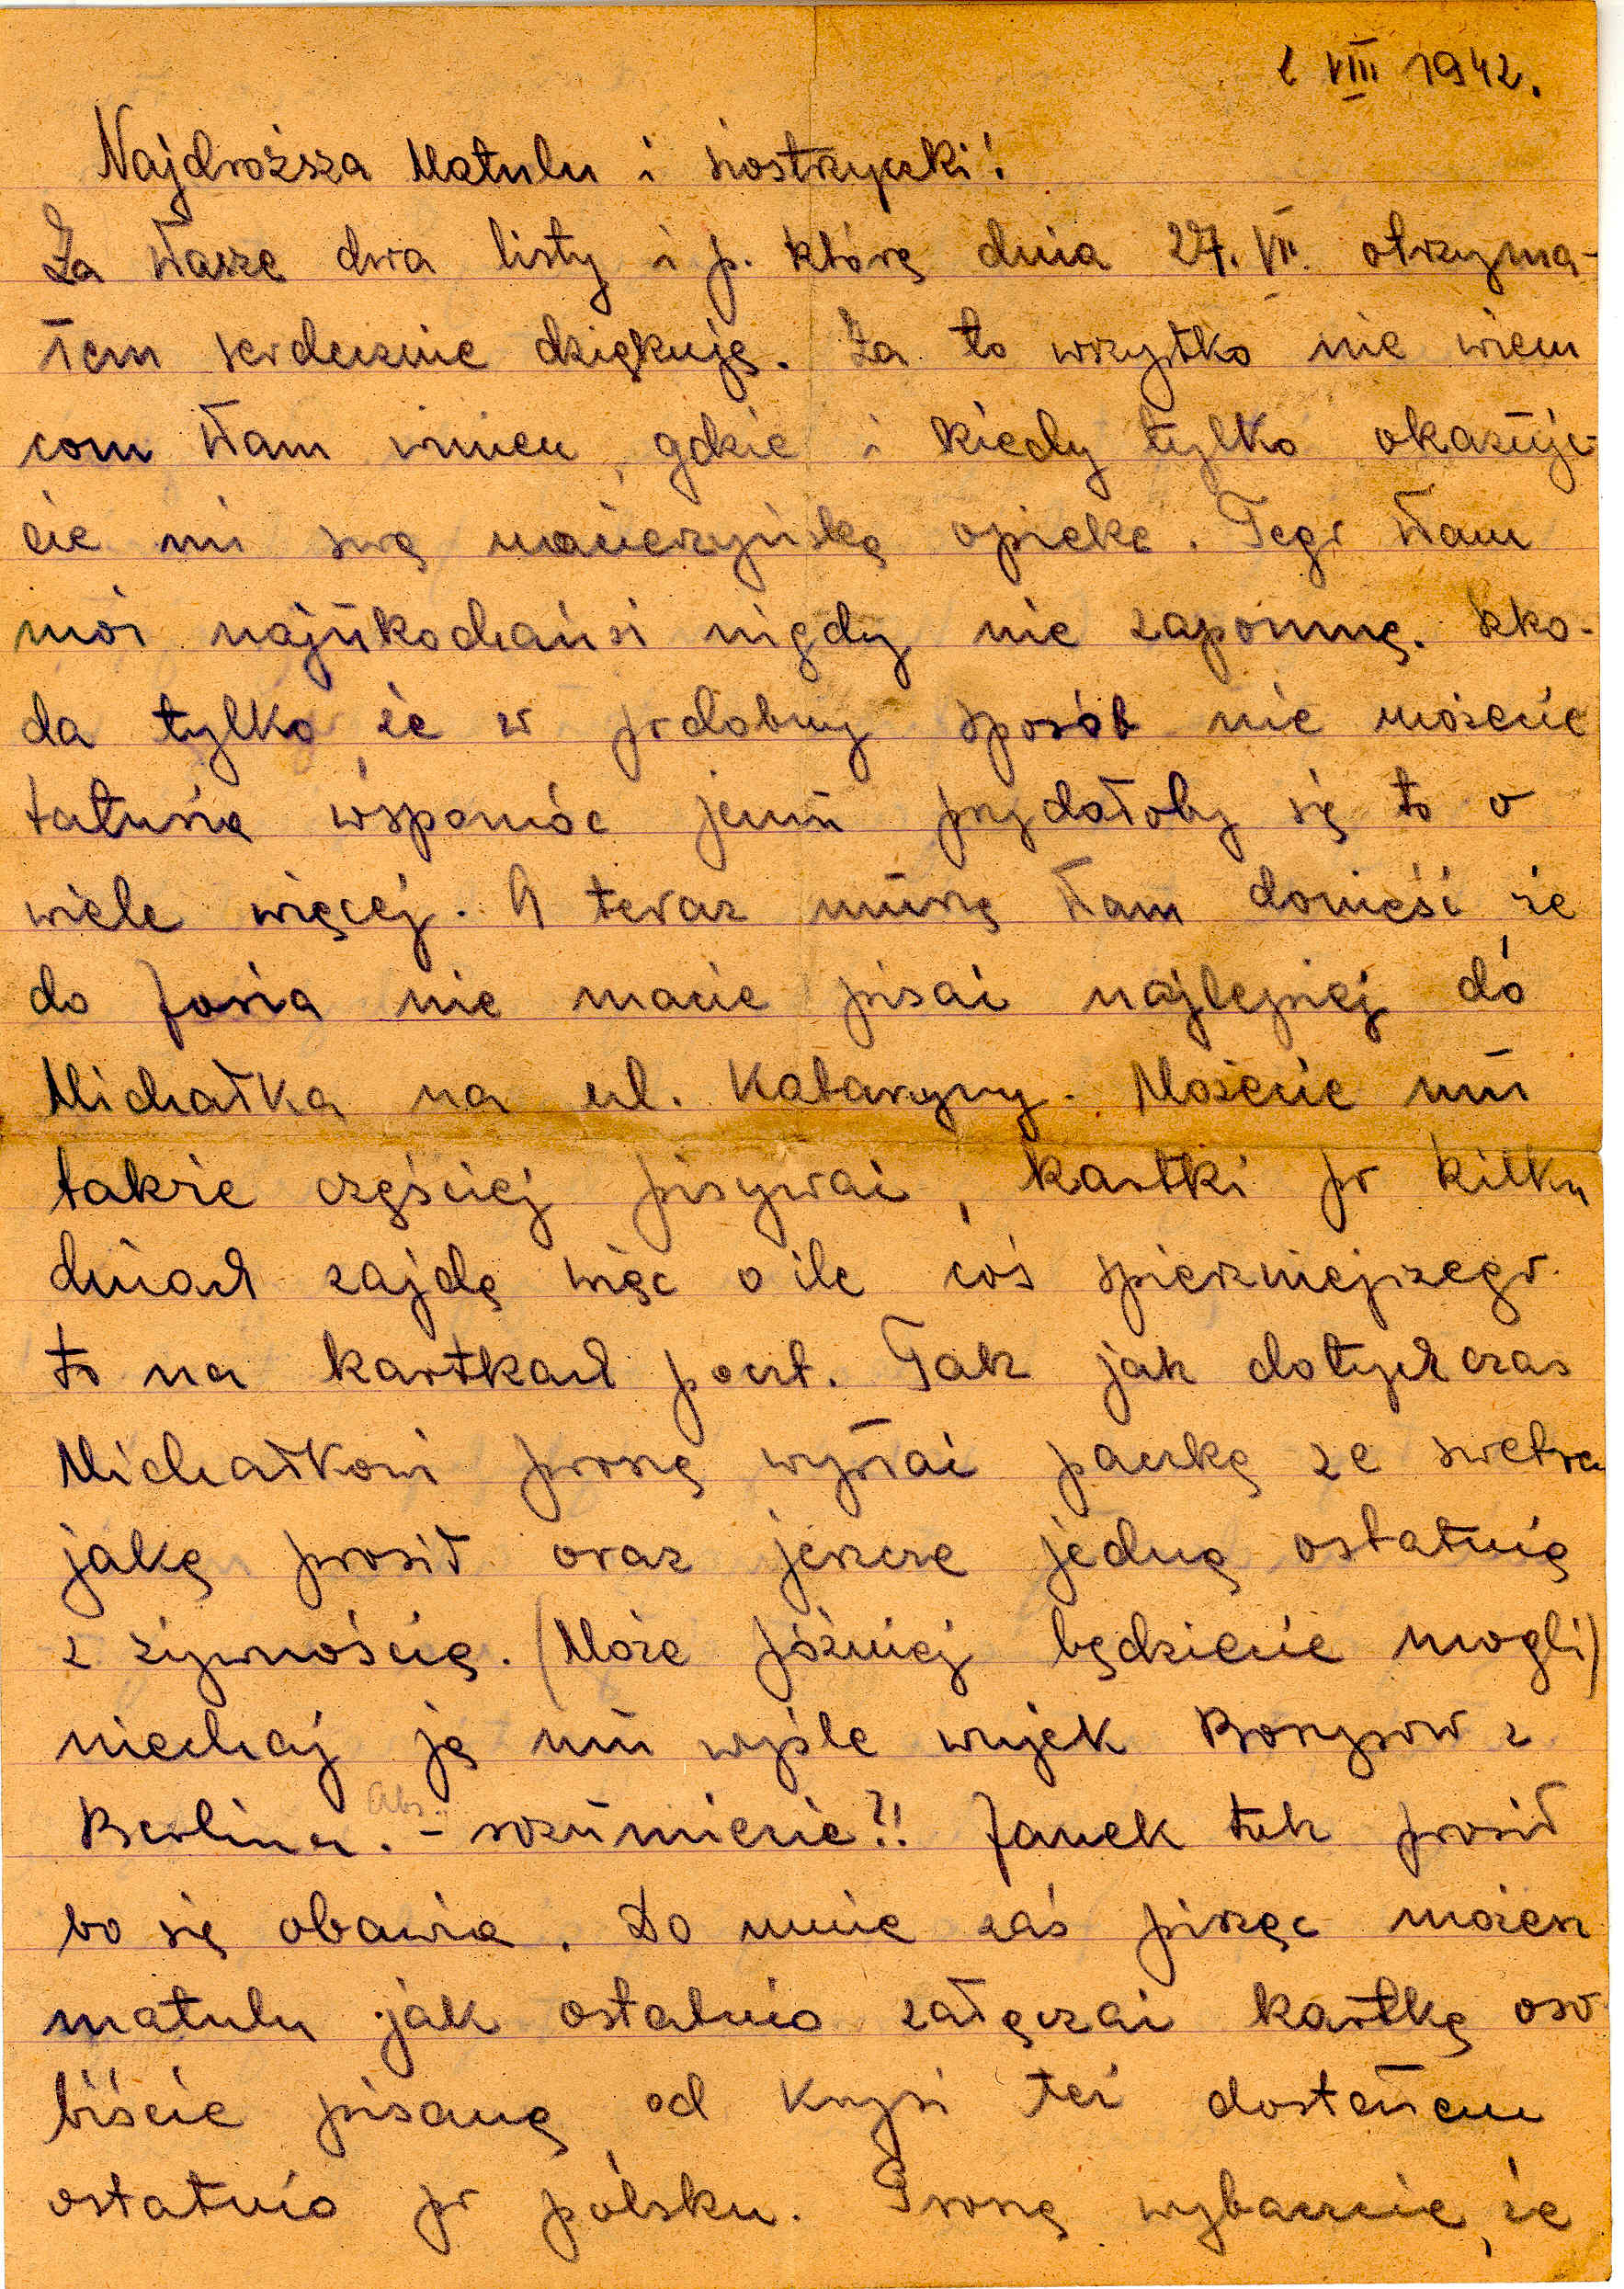 2 VIII 1942.
Najdroższa Matulu i siostrzyczki!
Za Wasze dwa listy i p. którą dnia 27. VII. otrzyma-
łem serdecznie dziękuję. Za to wszystko nie wiem
com Wam winien, gdzie i kiedy tylko okazuje-
cie mi swą macierzyńską opiekę. Tego Wam
moi najukochańsi nigdy nie zapomnę. Szko-
da tylko że w podobny sposób nie możecie
tatusia wspomóc jemu przydałoby się to o
wiele więcej. A teraz muszę Wam donieść że
do Josia nie macie pisać najlepiej do
Michałka na ul. Katarzyny. Możecie mu
także częściej pisywać, kartki po kilku
dniach zajdą więc o ile coś śpieszniejszego
to na kartkach poczt. Tak jak dotychczas
Michałkowi proszę wysłać paczkę ze swetrem
jaką prosił oraz jeszcze jedną ostatnią
z żywnością. (Może później będziecie mogli)
niechaj ją mu wyśle wujek Borysow z
Berlina. - rozumiecie?! Janek tak prosił
Abs.
bo się obawia. Do mnie zaś pisząc możesz
matulu jak ostatnio załączać kartkę oso
biście pisaną od Krysi też dostałem
ostatnio po polsku. Proszę wybaczcie, że